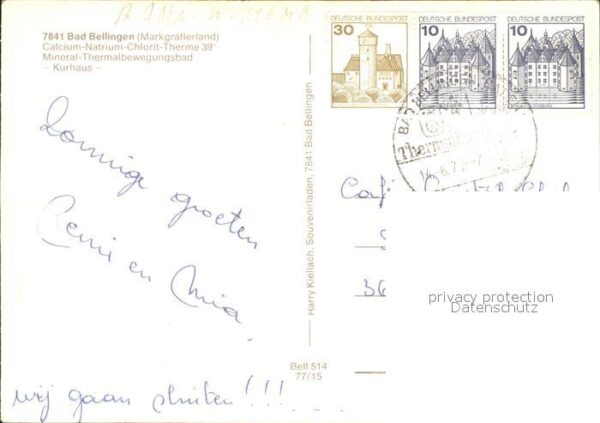 7841 Bad Bellingen (Markgräflerland)
Calcium-Natrium-Chlorit-Therme 39°
Mineral-Thermalbewegungsbad
— Kurhaus —
DEUTSCHE BUNDESPOST
30
DEUTSCHE BUNDESPOST
10
DEUTSCHE BUNDESPOST
10
BAD
Therm
Zonnige groeten
Remi en Mia
wij gaan sluiten!!!
Harry Kiellach, Souvenirladen, 7841 Bad Bellingen
Bell 514
77/15
Café
36
privacy protection
Datenschutz